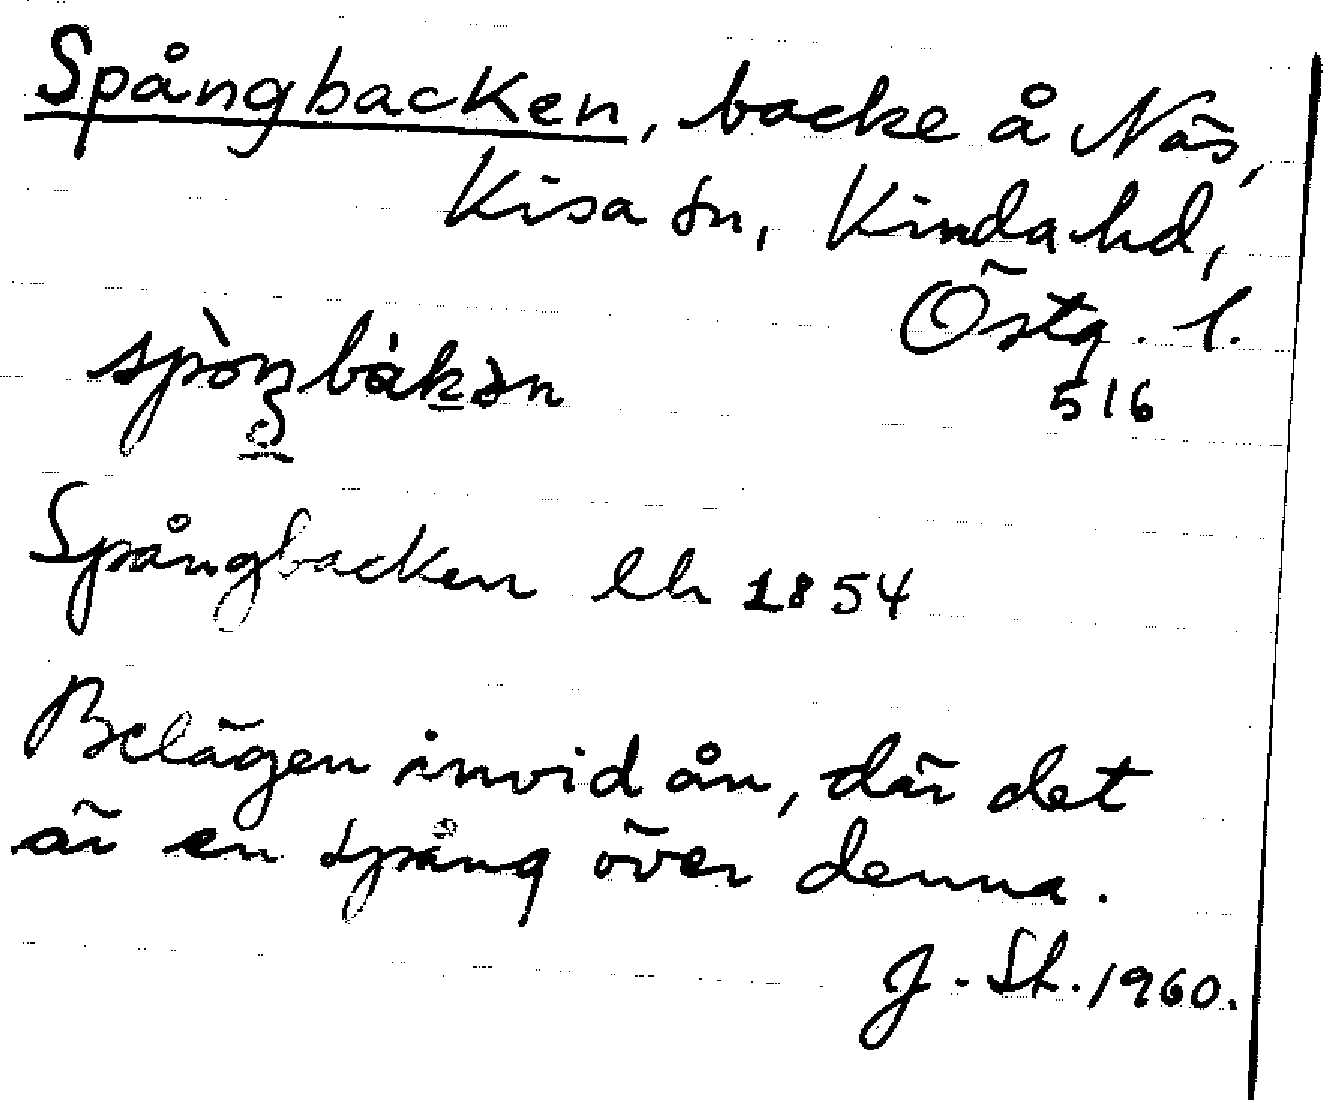 Spångbacken, backe å Näs,
Kisa sn, Kinda hd,
Östg. l.
516
Spångbacken lh 1854
Belägen invid ån, där det
är en spång över denna.
J. St. 1960.